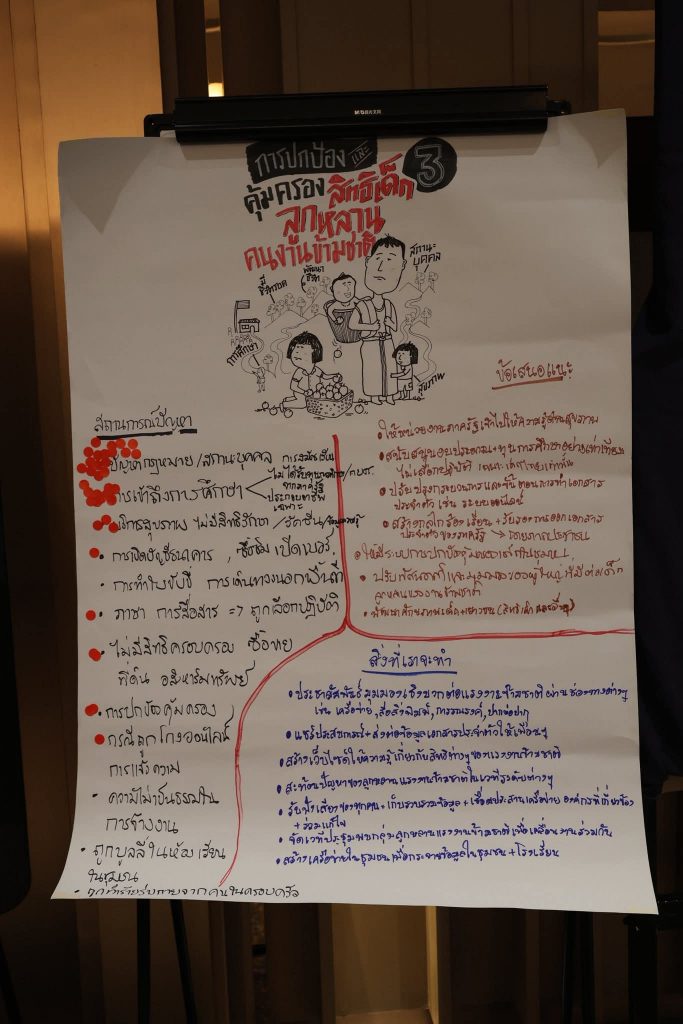 M&G晨光文具
การปกป้อง และ
คุ้มครอง สิทธิเด็ก 3
ลูกหลาน
คนงานข้ามชาติ
สถานะ
บุคคล
พัฒนา
ชีวิต
มี
ชีวิตรอด
การศึกษา
สุขภาพ
สถานการณ์ปัญหา
ปัญหากฎหมาย/สถานะบุคคล
ไม่ได้รับ
จากภาครัฐ
ประกอบอาชีพ
เฉพาะ
การเข้าถึงการศึกษา
บริการสุขภาพ ไม่มีสิทธิรักษา / วัคซีน/
• การเปิดบัญชีธนาคาร, ซื้อซิม เปิดเบอร์,
การทำใบขับขี่ การเดินทางนอกพื้นที่
• ภาษา การสื่อสาร => ถูกเลือกปฏิบัติ
• ไม่มีสิทธิครอบครอง ซื้อขาย
ที่ดิน อสังหาริมทรัพย์
• การปกป้องคุ้มครอง
• กรณีถูกโกงออนไลน์
การแจ้งความ
• ความไม่เป็นธรรมใน
การจ้างงาน
• ถูกบูลลี่ในห้องเรียน
ในชุมชน
• ถูกทำร้ายร่างกายจากคนในครอบครัว
ข้อเสนอแนะ
• ให้หน่วยงานภาครัฐเข้าไปให้ความรู้ด้านสุขภาพ
• สนับสนุนงบประมาณ + ทุนการศึกษาอย่างเท่าเทียม
ไม่เลือกปฏิบัติ
• ปรับปรุงกระบวนการและขั้นตอนการทำเอกสาร
ประจำตัว เช่น ระบบออนไลน์
• สร้างกลไกร้องเรียน + รับรองการออกเอกสาร
ประจำตัวของภาครัฐ → โดยภาคประชาชน
• ให้มีระบบการปกป้องคุ้มครองเด็กในชุมชน
• ปรับทัศนคติและมุมมองของผู้ใหญ่ที่มีต่อเด็ก
ลูกหลานแรงงานข้ามชาติ
• พัฒนาศักยภาพเด็ก + เยาวชน
สิ่งที่เราจะทำ
• ประชาสัมพันธ์ มุมมองเชิงบวกต่อแรงงานข้ามชาติ ผ่านช่องทางต่างๆ
เช่น เครือข่าย, สื่อสิ่งพิมพ์, การรณรงค์, ปากต่อปาก
• แชร์ประสบการณ์ + ส่งต่อข้อมูลเอกสารประจำตัวให้เพื่อนๆ
• สร้างเว็บไซต์ให้ความรู้เกี่ยวกับสิทธิต่างๆของแรงงานข้ามชาติ
• สะท้อนปัญหาของลูกหลานแรงงานข้ามชาติในเวทีระดับต่างๆ
• รับฟังเสียงของทุกคน + เก็บรวบรวมข้อมูล + เชื่อมประสานเครือข่าย องค์กรที่เกี่ยวข้อง
+ ร่วมแก้ไข
• จัดเวทีประชุมพบกลุ่มลูกหลานแรงงานข้ามชาติเพื่อเคลื่อนงานร่วมกัน
• สร้างเครือข่ายในชุมชนเพื่อกระจายข้อมูลในชุมชน + โรงเรียน